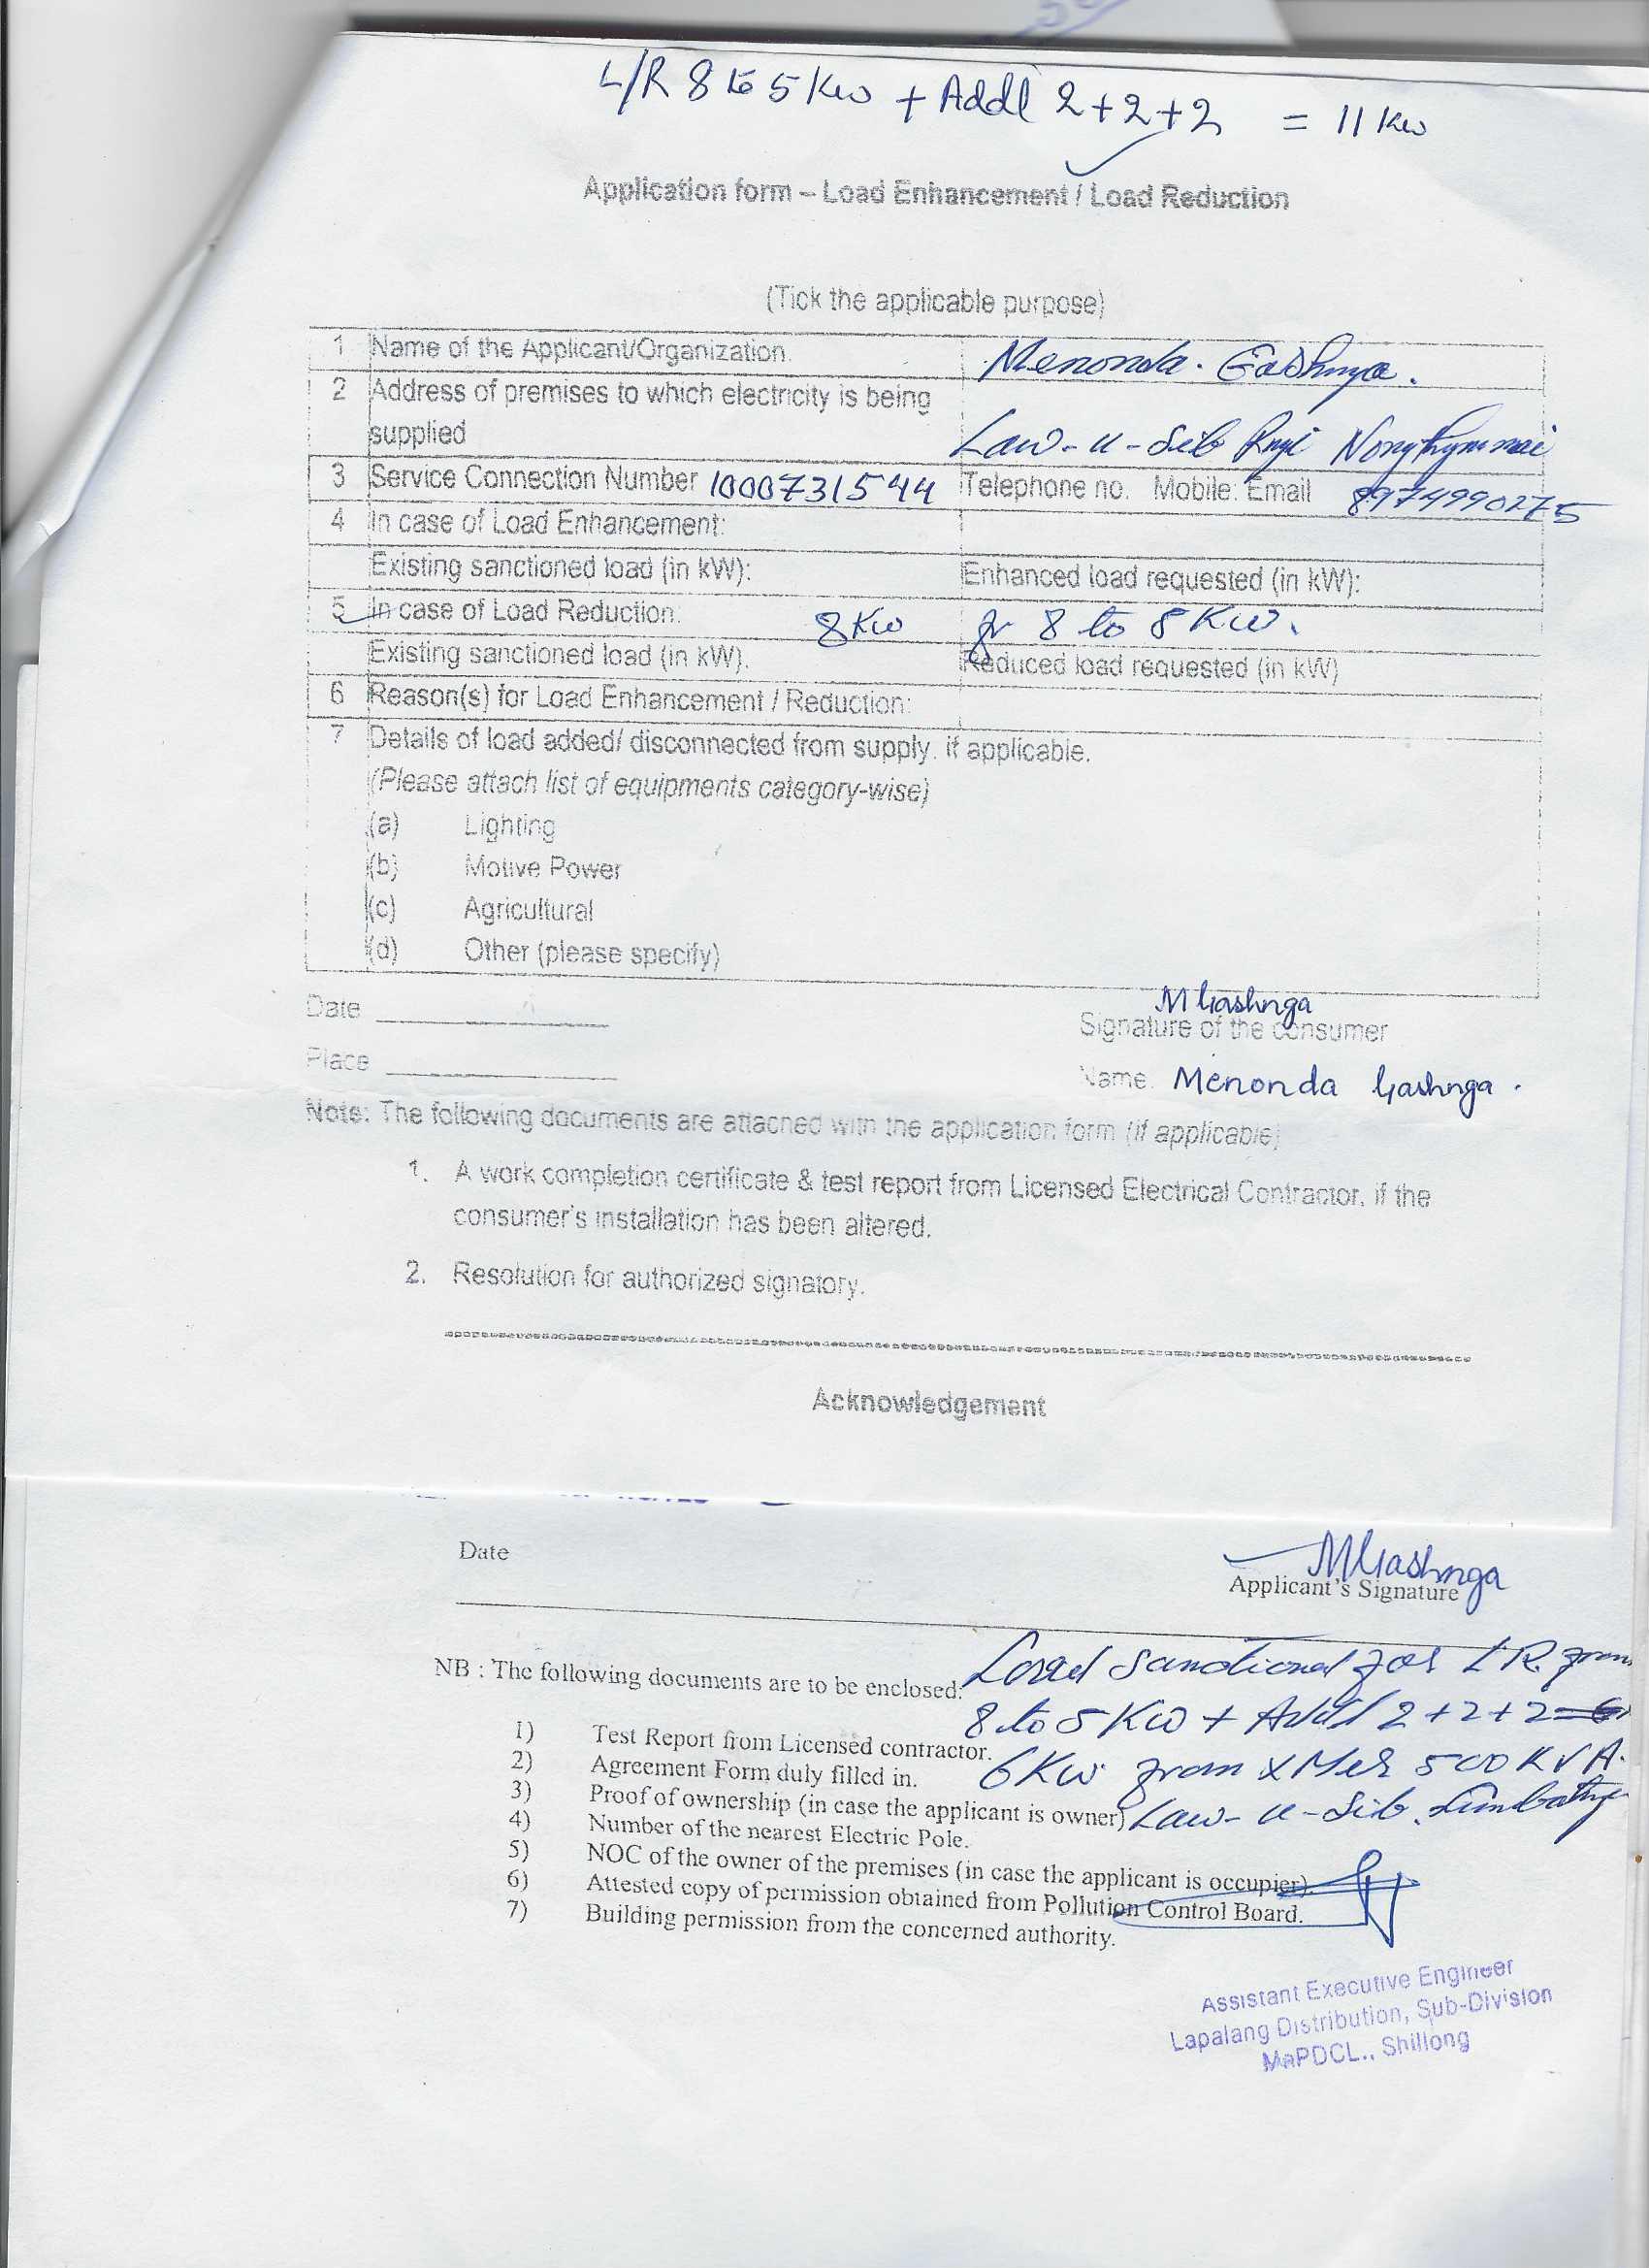 L/R 8 to 5 Kw + Addl 2+2+2 = 11 Kw
Application form – Load Enhancement / Load Reduction
(Tick the applicable purpose)
1 Name of the Applicant/Organization. Menonda. Gashnga.
2 Address of premises to which electricity is being supplied Law-u-Sib Rngi Nongthymmai
3 Service Connection Number 1000731544 Telephone no. Mobile: Email 8974990275
4 In case of Load Enhancement:
Existing sanctioned load (in kW): Enhanced load requested (in kW):
5 In case of Load Reduction. 8 Kw fr 8 to 5 Kw.
Existing sanctioned load (in kW). Reduced load requested (in kW)
6 Reason(s) for Load Enhancement / Reduction:
7 Details of load added/ disconnected from supply. if applicable.
(Please attach list of equipments category-wise)
(a) Lighting
(b) Motive Power
(c) Agricultural
(d) Other (please specify)
MGashnga
Date Signature of the consumer
Place Name. Menonda Gashnga.
Note: The following documents are attached with the application form (if applicable)
1. A work completion certificate & test report from Licensed Electrical Contractor, if the
consumer's installation has been altered.
2. Resolution for authorized signatory.
Acknowledgement
MGashnga
Date Applicant's Signature
NB : The following documents are to be enclosed: Load Sanctioned for LR. from
8 to 5 KW + Addl 2+2+2=
1) Test Report from Licensed contractor. 6 Kw from XMer 500 KVA.
2) Agreement Form duly filled in.
3) Proof of ownership (in case the applicant is owner) Law-u-Sib.
4) Number of the nearest Electric Pole.
5) NOC of the owner of the premises (in case the applicant is occupier).
6) Attested copy of permission obtained from Pollution Control Board.
7) Building permission from the concerned authority.
Assistant Executive Engineer
Lapalang Distribution, Sub-Division
MePDCL., Shillong